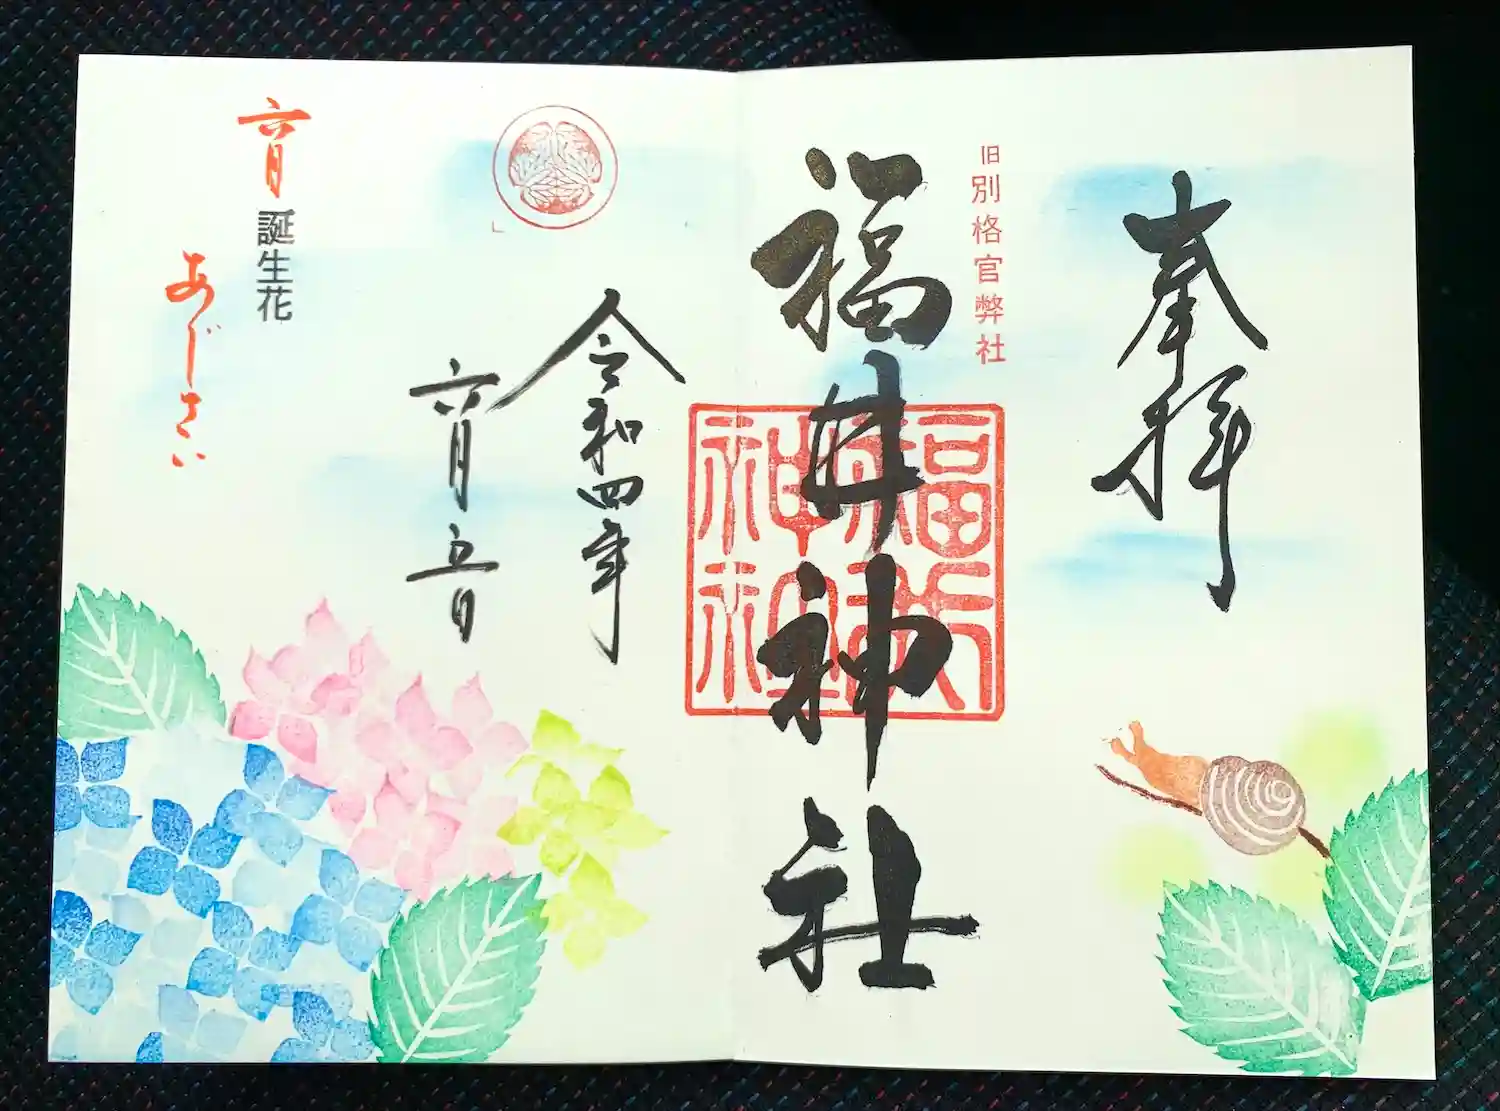 奉拝
旧別格官弊社
福井神社
令和四年
六月五日
六月誕生花
あじさい